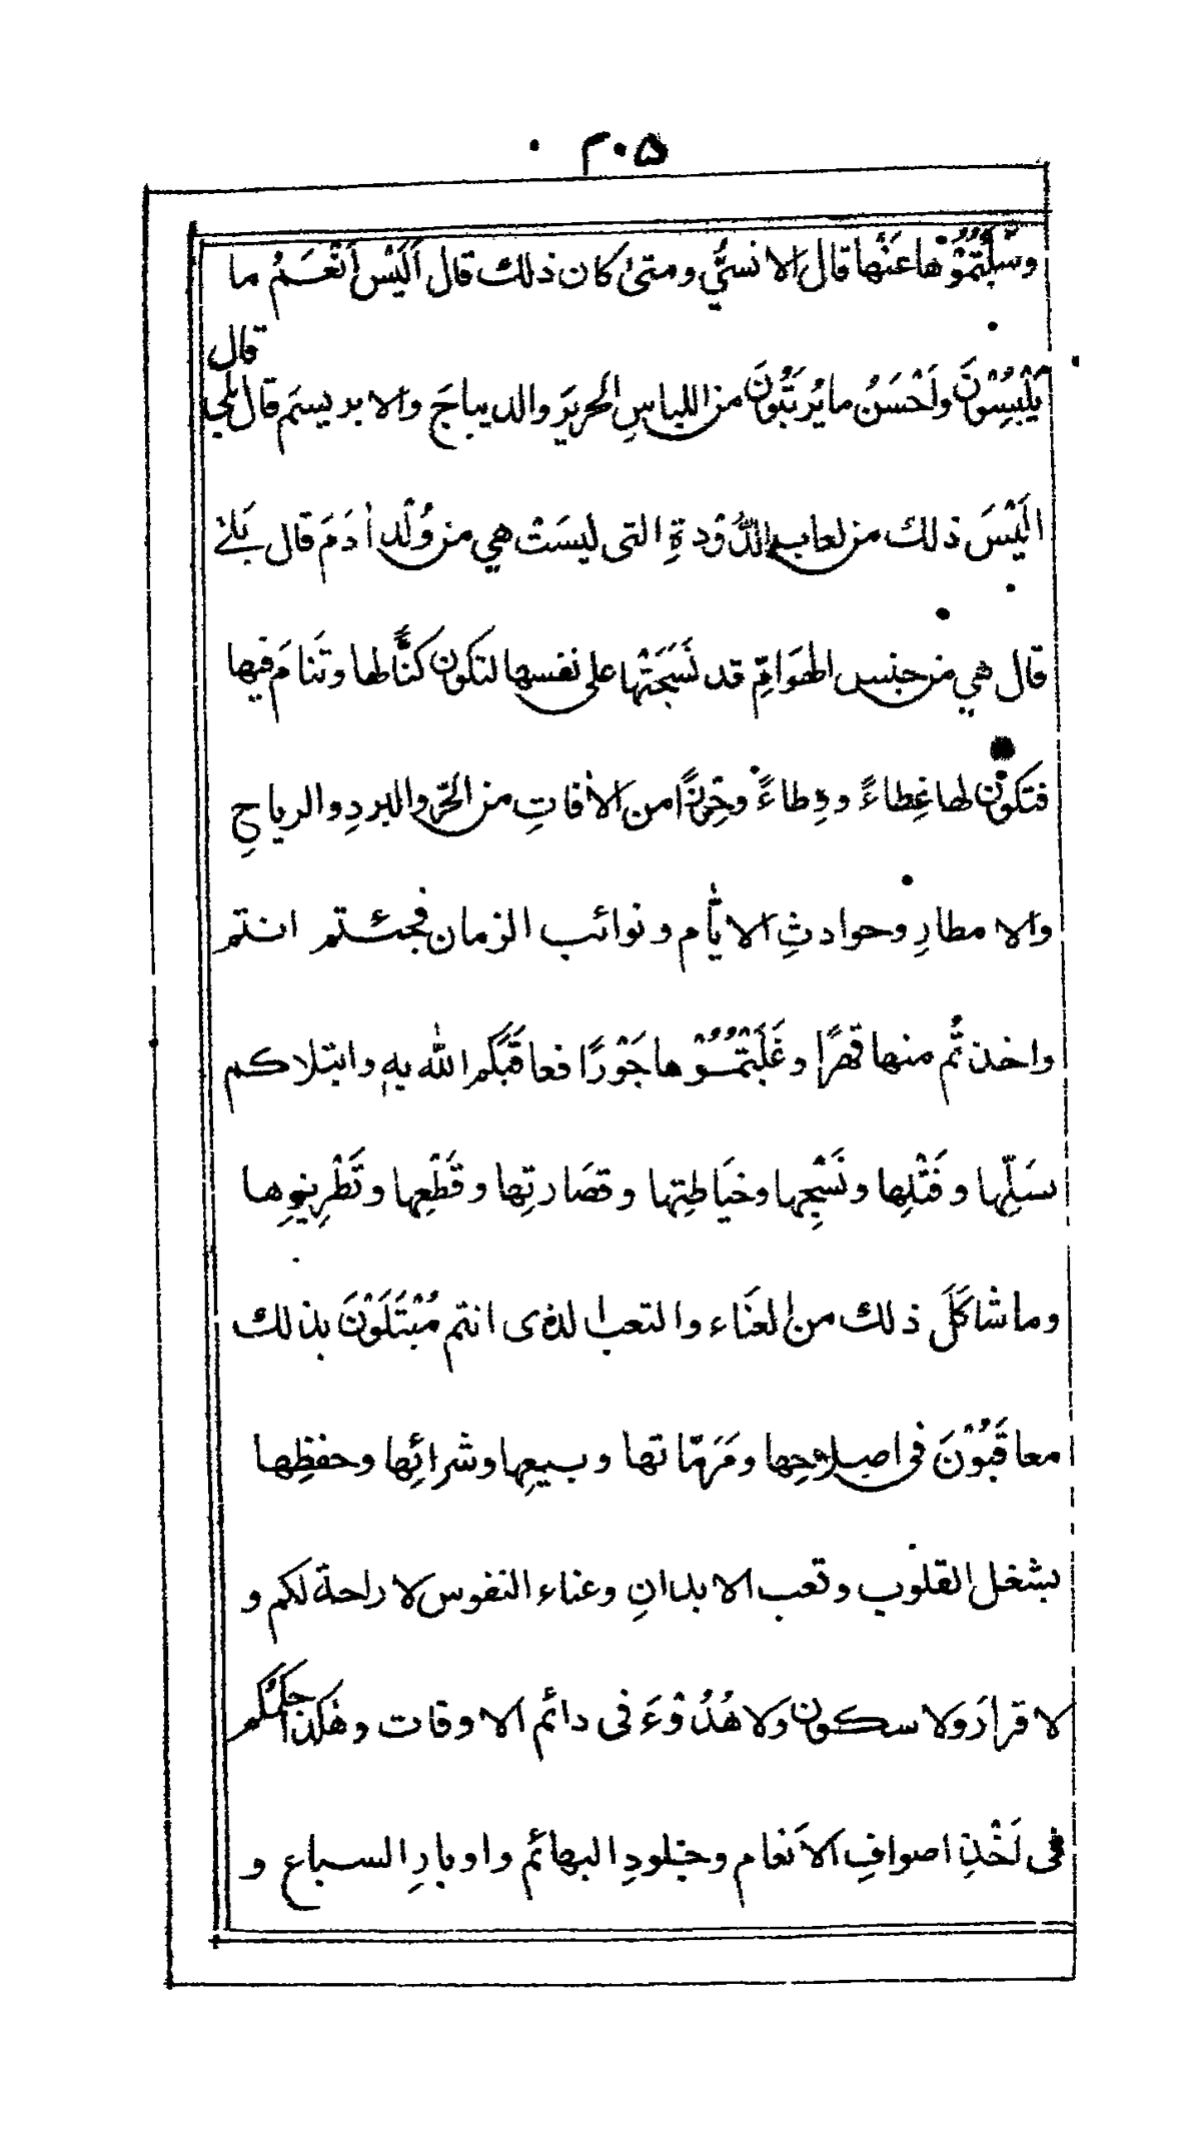 ۲۰۵
وسَلَبْتُمُوْها عَنْها قال الانسيُّ ومتىٰ كان ذلك قال اَلَيْسَ اَنْعَمُ ما
يَلْبَسُوْنَ واَحْسَنُ ما يُرَتِّبُوْنَ من اللباسِ الحريرَ والديباجَ والابريسَمَ قال بلى قال
اَلَيْسَ ذلك من لعابِ الدُّوْدةِ التى ليسَتْ هي من وُلْدِ اٰدَمَ قال بَلىٰ
قال هي من جنس الهَوَامِّ قد نَسَجَتْها على نفسها لتكون كنًّا لها وتَنامَ فيها
فتكون لها غِطاءً ووِطاءً وحِرزًا من الاٰفاتِ من الحَرِّ والبردِ والرياحِ
والامطارِ وحوادثِ الايّام ونوائب الزمان فجئتم انتم
واخذتُم منها قهرًا وغَلَبْتُمُوْها جَوْرًا فعاقَبَكم الله به وابتلاكم
بسَلِّها وفَتْلِها ونَسْجِها وخيَاطتِها وقصَارتِها وقَطْعِها وتَطْرِيزِها
وما شاكَلَ ذلك من العَنَاء والتعب الذى انتم مُبْتَلَوْنَ بذلك
معاقَبُوْنَ فى اصلاحِها ومَرَمّاتها وبيعِها وشرائِها وحفظِها
بشغل القلوب وتعب الابدانِ وعناء النفوس لا راحة لكم و
لا قرارَ ولا سكون ولا هُدُوْءَ فى دائم الاوقات وهٰكذا حكمُكم
فى اَخْذِ اصوافِ الاَنعام وجلودِ البهائم واوبارِ السباع و